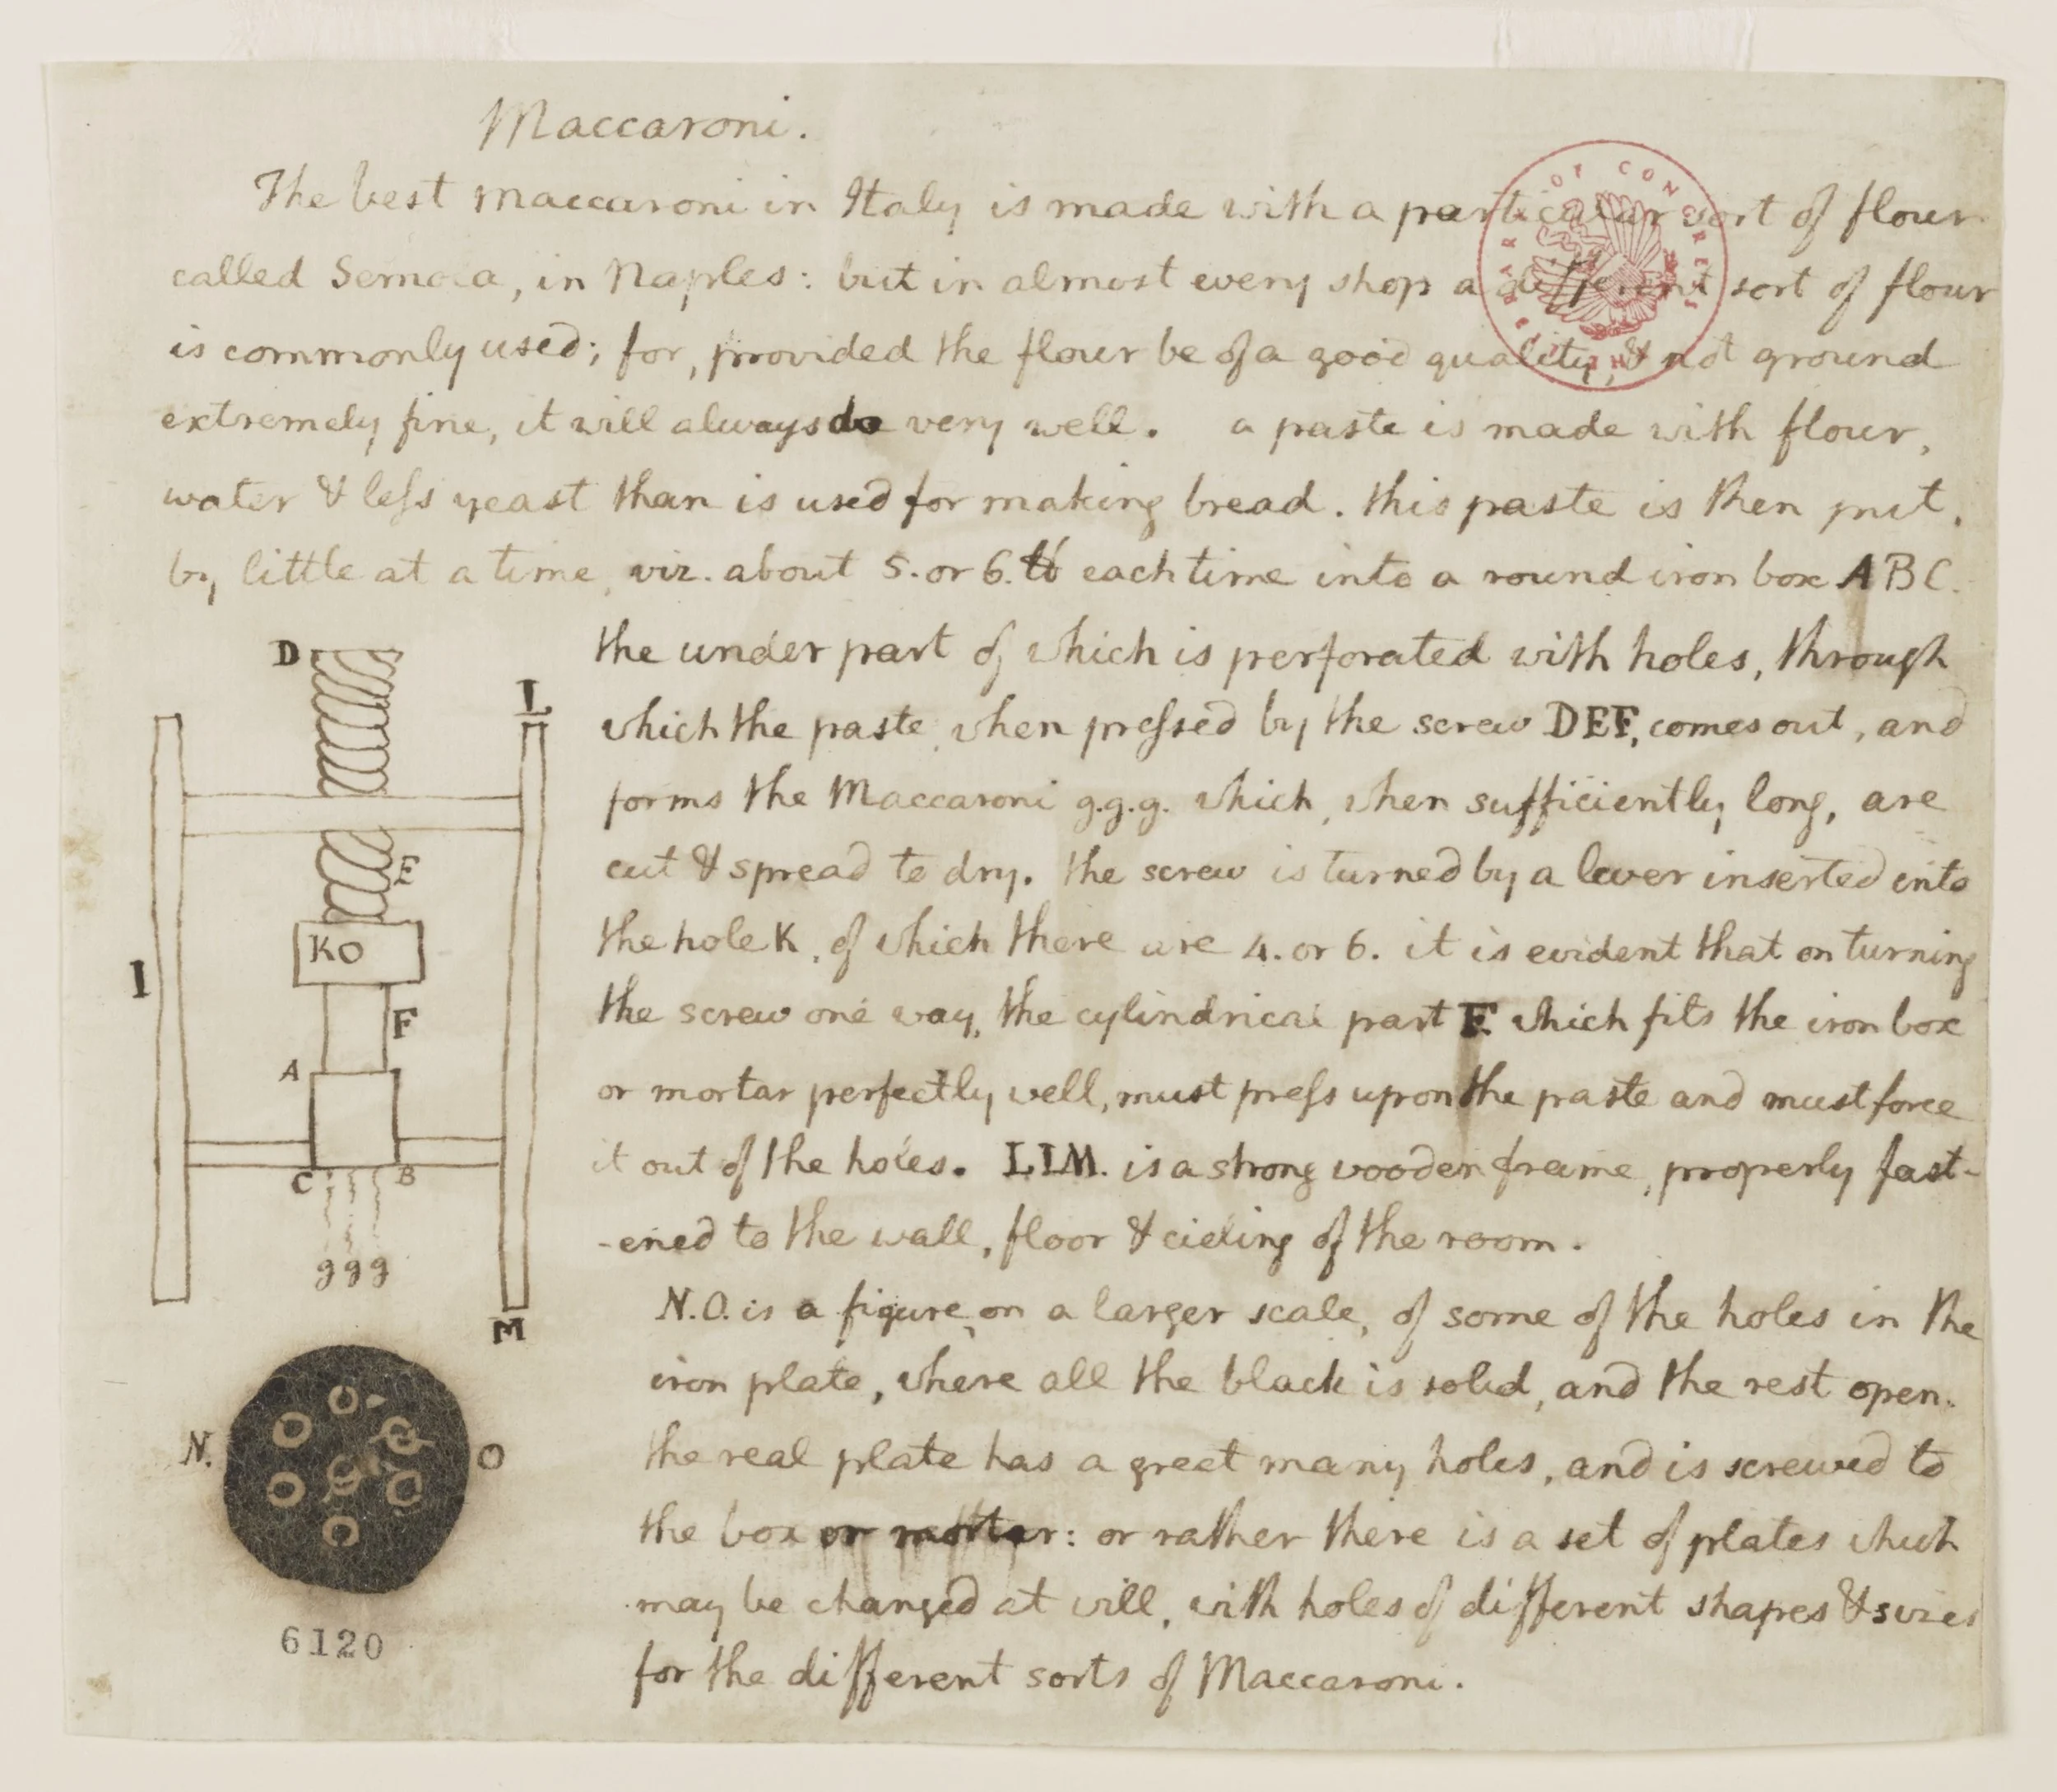 Maccaroni.
The best maccaroni in Italy is made with a particular sort of flour
called Semola, in Naples: but in almost every shop a different sort of flour
is commonly used; for, provided the flour be of a good quality, & not ground
extremely fine, it will always do very well. a paste is made with flour,
water & less yeast than is used for making bread. this paste is then put,
by little at a time, viz. about 5. or 6. ℔ each time into a round iron box ABC.
the under part of which is perforated with holes, through
which the paste, when pressed by the screw DEF, comes out, and
forms the Maccaroni g.g.g. which, when sufficiently long, are
cut & spread to dry. the screw is turned by a lever inserted into
the hole K, of which there are 4. or 6. it is evident that on turning
the screw one way, the cylindrical part F. which fits the iron box
or mortar perfectly well, must press upon the paste and must force
it out of the holes. LIM. is a strong wooden frame, properly fast-
-ened to the wall, floor & cieling of the room.
N.O. is a figure, on a larger scale, of some of the holes in the
iron plate, where all the black is solid, and the rest open.
the real plate has a great many holes, and is screwed to
the box or mortar: or rather there is a set of plates which
may be changed at will, with holes of different shapes & sizes
for the different sorts of Maccaroni.
D
L
E
KO
I
F
A
C B
ggg
M
N. O
6120
LIBRARY OF CONGRESS